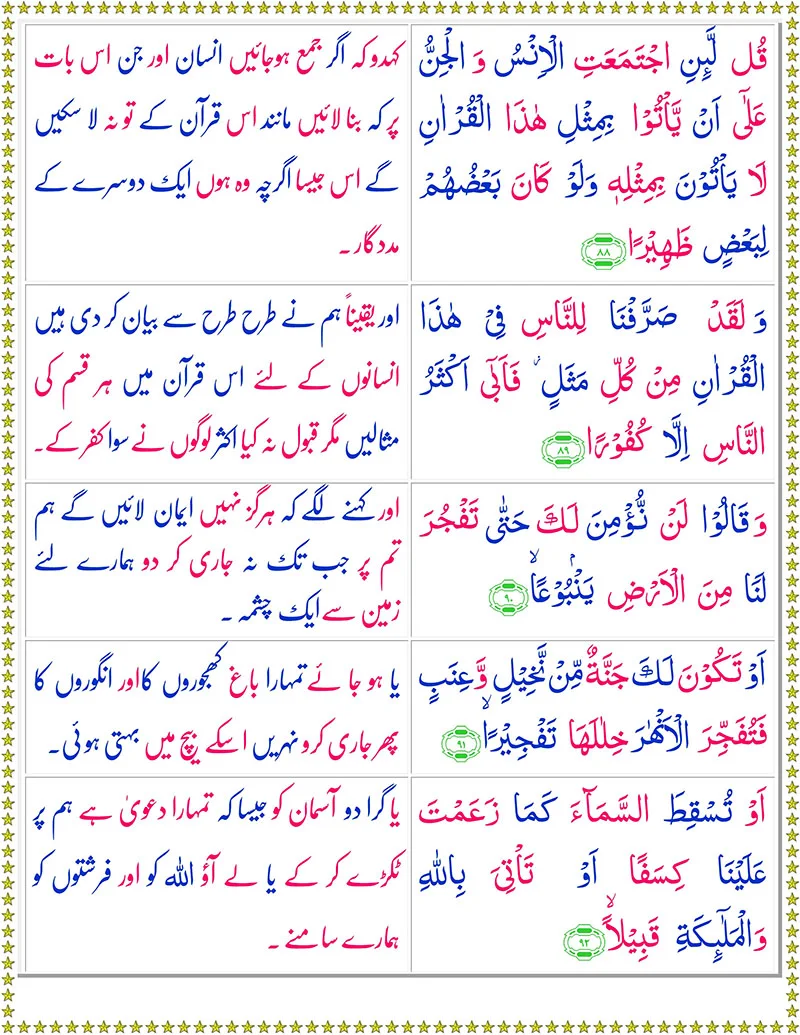 قُل لَّىِٕنِ اجْتَمَعَتِ الْاِنْسُ وَ الْجِنُّ
عَلٰٓى اَنْ يَّاْتُوْا بِمِثْلِ هٰذَا الْقُرْاٰنِ
لَا يَاْتُوْنَ بِمِثْلِهٖ وَلَوْ كَانَ بَعْضُهُمْ
لِبَعْضٍ ظَهِيْرًا ٨٨
کہدو کہ اگر جمع ہوجائیں انسان اور جن اس بات
پر کہ بنا لائیں مانند اس قرآن کے تو نہ لا سکیں
گے اس جیسا اگرچہ وہ ہوں ایک دوسرے کے
مددگار۔
وَ لَقَدْ صَرَّفْنَا لِلنَّاسِ فِىْ هٰذَا
الْقُرْاٰنِ مِنْ كُلِّ مَثَلٍ ۫ فَاَبٰٓى اَكْثَرُ
النَّاسِ اِلَّا كُفُوْرًا ٨٩
اور یقیناً ہم نے طرح طرح سے بیان کر دی ہیں
انسانوں کے لئے اس قرآن میں ہر قسم کی
مثالیں مگر قبول نہ کیا اکثر لوگوں نے سوا کفر کے۔
وَ قَالُوْا لَنْ نُّؤْمِنَ لَـكَ حَتّٰى تَفْجُرَ
لَنَا مِنَ الْاَرْضِ يَنْۢبُوْعًا ۙ ٩٠
اور کہنے لگے کہ ہرگز نہیں ایمان لائیں گے ہم
تم پر جب تک نہ جاری کر دو ہمارے لئے
زمین سے ایک چشمہ ۔
اَوْ تَكُوْنَ لَـكَ جَنَّةٌ مِّنْ نَّخِيْلٍ وَّ عِنَبٍ
فَتُفَجِّرَ الْاَنْهٰرَ خِلٰلَهَا تَفْجِيْرًا ۙ ٩١
یا ہو جائے تمہارا باغ کھجوروں کا اور انگوروں کا
پھر جاری کرو نہریں اسکے بیچ میں بہتی ہوئی۔
اَوْ تُسْقِطَ السَّمَآءَ كَمَا زَعَمْتَ
عَلَيْنَا كِسَفًا اَوْ تَاْتِىَ بِاللّٰهِ
وَالْمَلٰۤٮِٕكَةِ قَبِيْلًا ۙ ٩٢
یا گرا دو آسمان کو جیسا کہ تمہارا دعویٰ ہے ہم پر
ٹکڑے کر کے یا لے آؤ اللہ کو اور فرشتوں کو
ہمارے سامنے ۔